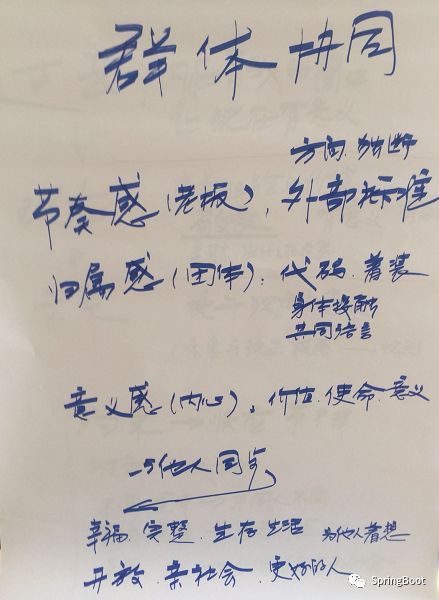 群体协同
方向、独断
节奏感(老板), 外部标准
归属感(团体): 代码、着装
身体接触
共同语言
意义感(内心)。价值、使命、意义
与他人同
幸福、完整、生存、生活 为他人着想
开放、亲社会、更好的人
SpringBoot